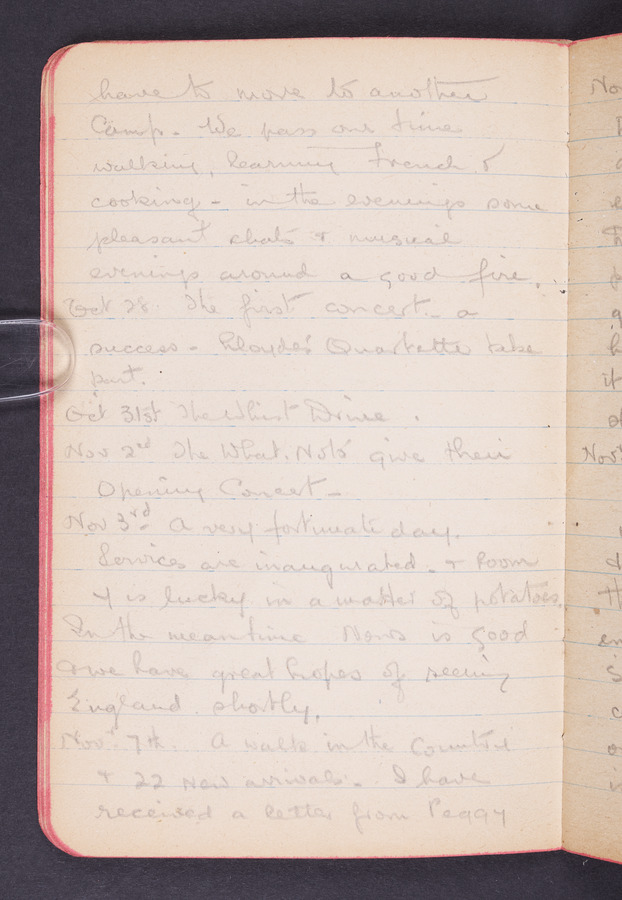 have to move to another
Camp. We pass our time
walking, learning French &
cooking - in the evenings some
pleasant chats & musical
evenings around a good fire.
Oct 28 The first concert - a
success - Lloyde's Quartette take
part.
Oct 31st The Whist Drive.
Nov 2nd The What. Nots give their
Opening Concert -
Nov 3rd A very fortunate day.
Services are inaugurated. & Room
4 is lucky in a matter of potatoes.
In the meantime News is good
& we have great hopes of seeing
England shortly.
Nov. 7th. A walk in the Country
& 22 new arrivals. I have
received a letter from Peggy
Nov